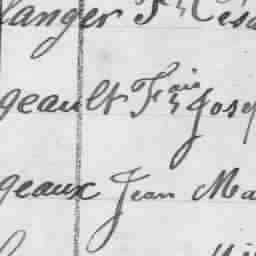 langer Fs Césa
geault Fs ais Josep
geaux Jean Ma